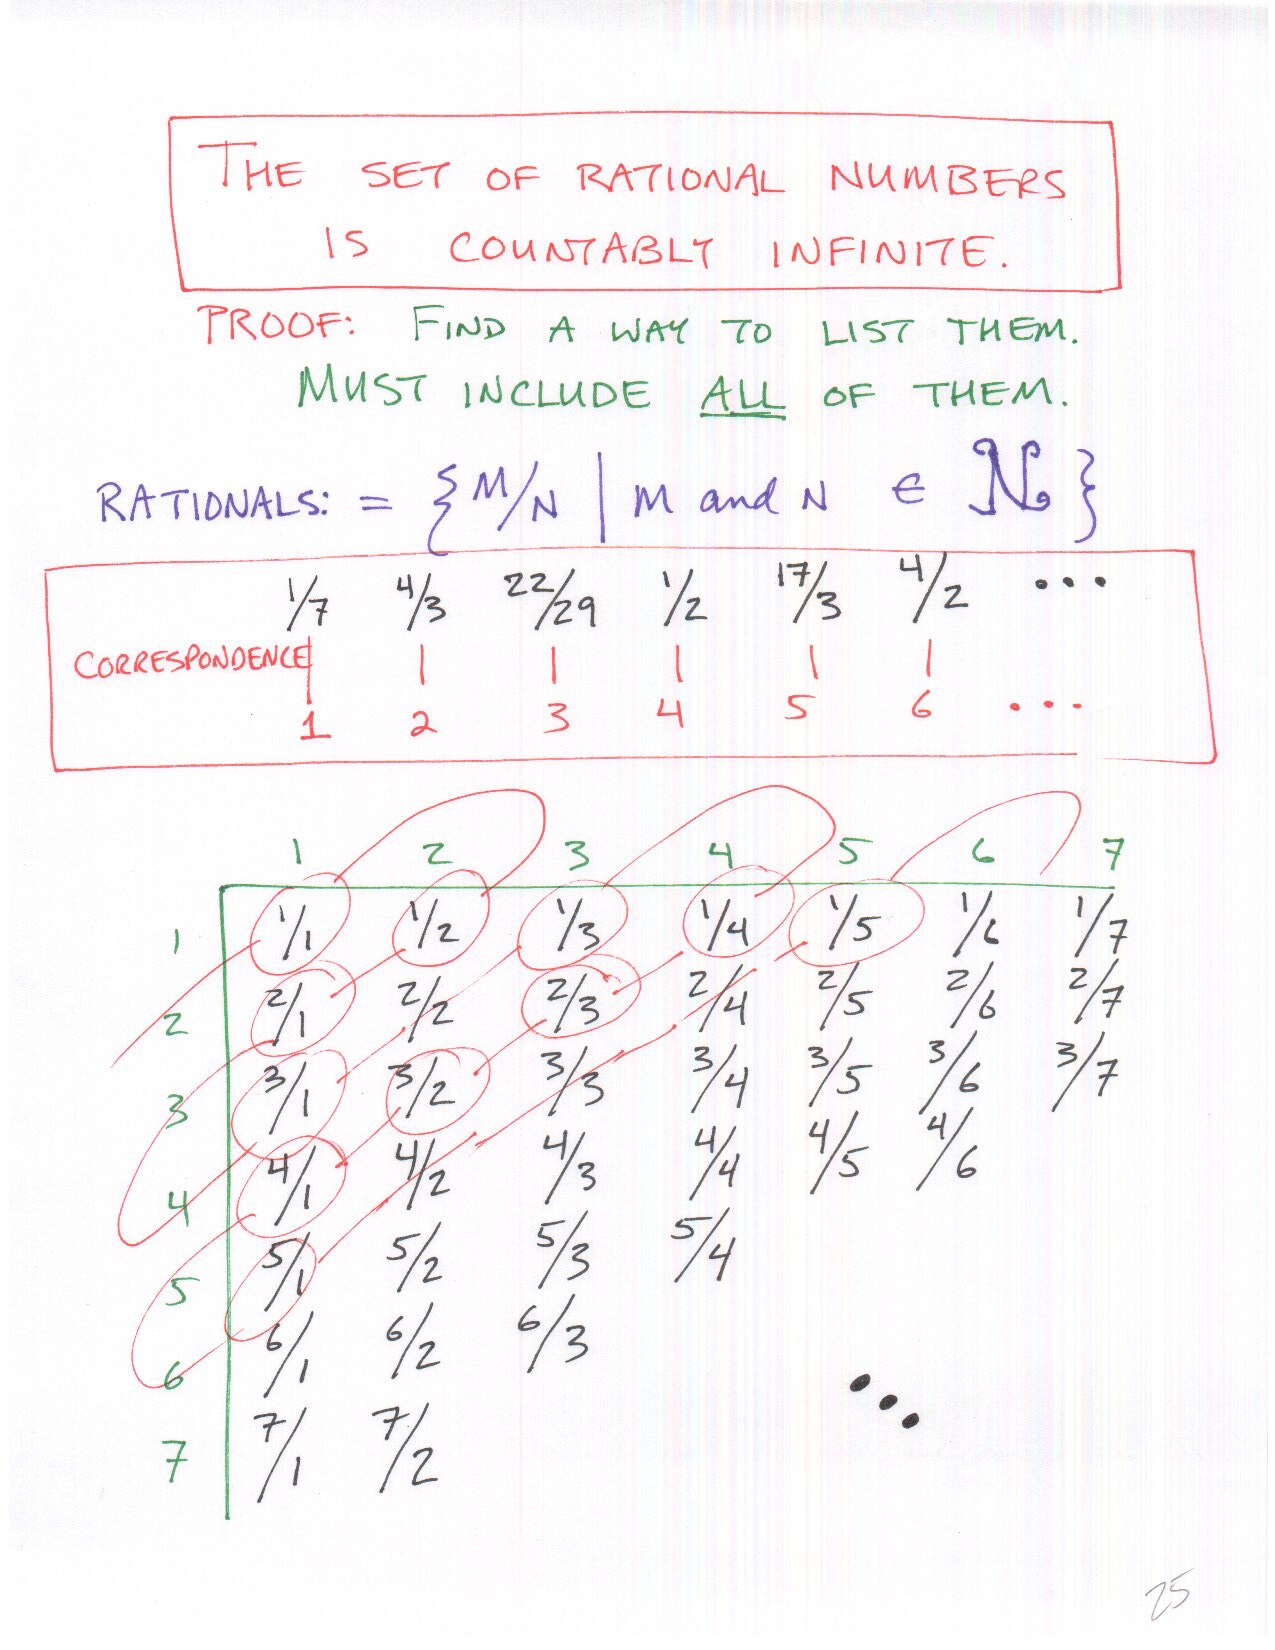 THE SET OF RATIONAL NUMBERS
IS COUNTABLY INFINITE.
PROOF: FIND A WAY TO LIST THEM.
MUST INCLUDE ALL OF THEM.
RATIONALS: = { M/N | M and N ∈ N }
1/7 4/3 22/29 1/2 17/3 4/2 ...
CORRESPONDENCE
1 2 3 4 5 6 ...
1 2 3 4 5 6 7
1 1/1 1/2 1/3 1/4 1/5 1/6 1/7
2 2/1 2/2 2/3 2/4 2/5 2/6 2/7
3 3/1 3/2 3/3 3/4 3/5 3/6 3/7
4 4/1 4/2 4/3 4/4 4/5 4/6
5 5/1 5/2 5/3 5/4
6 6/1 6/2 6/3
...
7 7/1 7/2
25